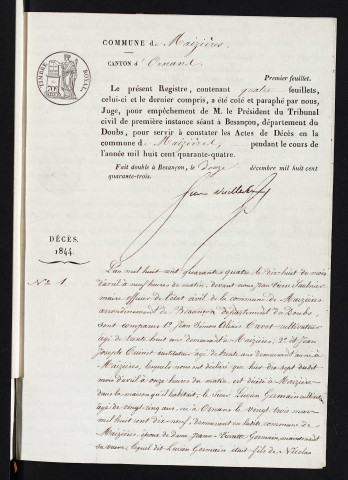 TIMBRE ROYAL
COMMUNE de Maizières
CANTON d'Ornans
Premier feuillet.
Le présent Registre, contenant quatre feuillets,
celui-ci et le dernier compris, a été coté et paraphé par nous,
Juge, pour empêchement de M. le Président du Tribunal
civil de première instance séant à Besançon, département du
Doubs, pour servir à constater les Actes de Décès en la
commune de Maizières, pendant le cours de
l'année mil huit cent quarante-quatre.
Fait double à Besançon, le douze décembre mil huit cent
quarante-trois.
DÉCÈS.
1844.
N° 1.
L'an mil huit cent quarante quatre le dix huit du mois
d'avril à neuf heures du matin, devant nous Jean Pierre
maire officier de l'état civil de la commune de Maizières
arrondissement de Besançon département du Doubs,
sont comparus 1° Jean cultivateur
âgé de trente huit ans demeurant à Maizières; 2° et Jean
Joseph instituteur âgé de trente ans demeurant aussi à
Maizières, lesquels nous ont déclaré que hier dix sept dudit
mois d'avril à onze heures du matin, est décédé à Maizières
dans la maison qu'il habitait, le sieur Lucien Germain
âgé de vingt cinq ans, né à Ornans le vingt trois mars
mil huit cent dix neuf, demeurant en ladite commune de
Maizières, époux de dame Jeanne Germain, maintenant
sa veuve; lequel dit Lucien Germain était fils de Nicolas